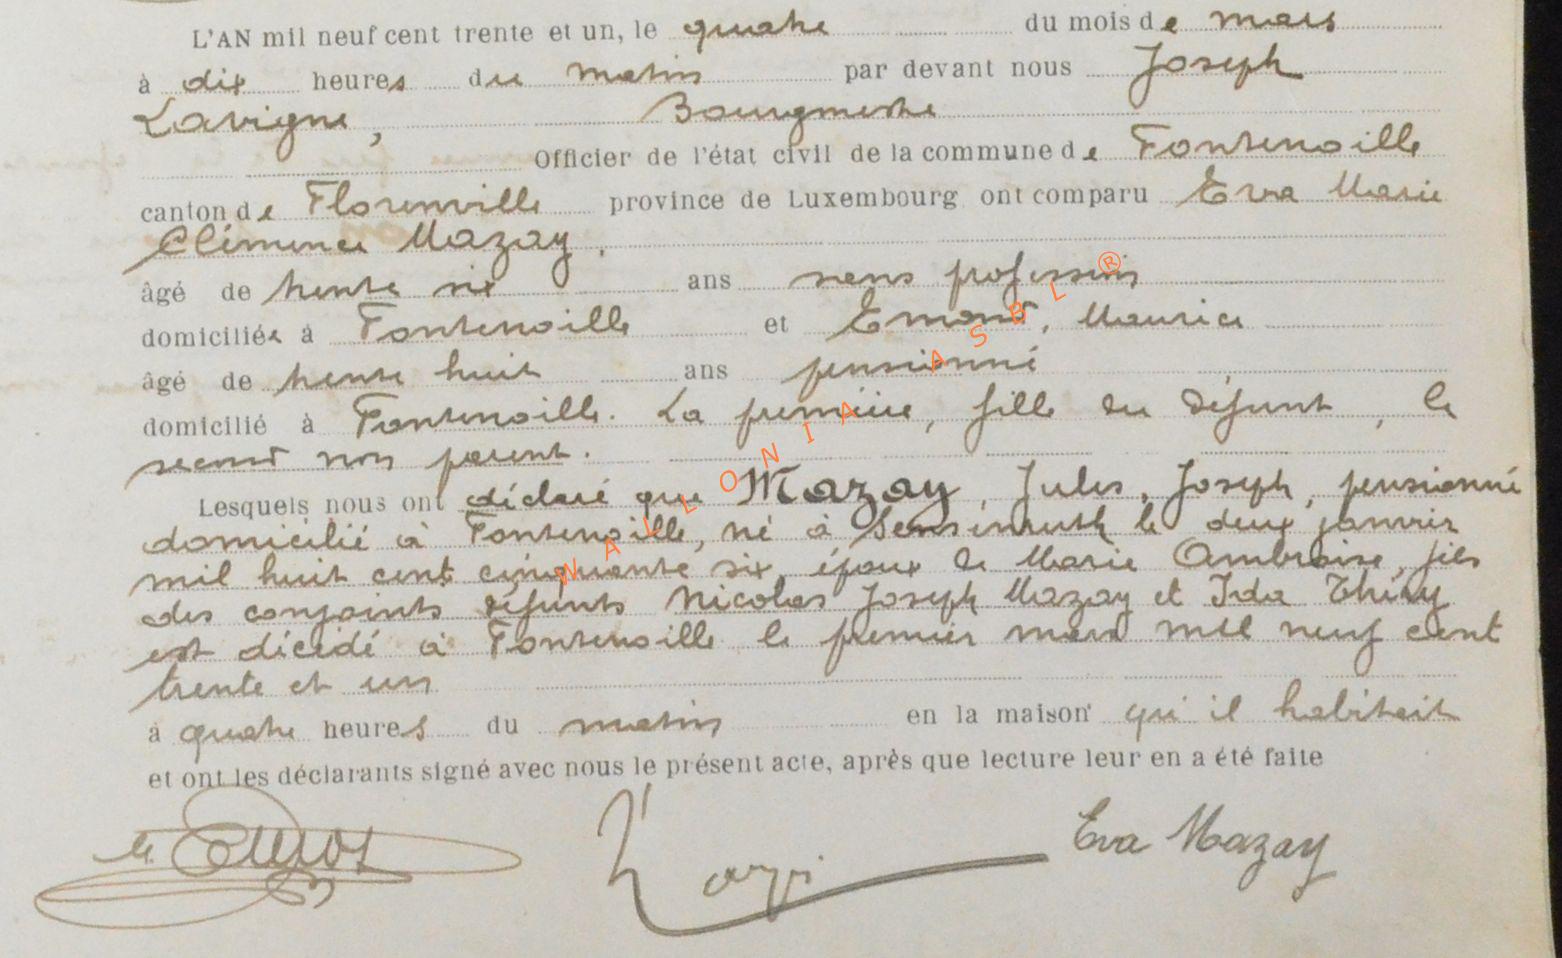 L'AN mil neuf cent trente et un, le quatre du mois de mars
à dix heures du matin par devant nous Joseph
Lavigne, Bourgmestre
Officier de l'état civil de la commune de Fontenoille
canton de Florenville province de Luxembourg ont comparu Eva Marie
Clémence Mazay.
âgé de trente six ans sans profession
domiciliée à Fontenoille et Emond, Maurice
âgé de trente huit ans pensionné
domicilié à Fontenoille. La première, fille du défunt, le
second non parent.
Lesquels nous ont déclaré que Mazay, Jules, Joseph, pensionné
domicilié à Fontenoille, né à Sensenruth le deux janvier
mil huit cent cinquante six, époux de Marie Ambroise, fils
des conjoints défunts Nicolas Joseph Mazay et Ida Thiry
est décédé à Fontenoille le premier mars mil neuf cent
trente et un
à quatre heures du matin en la maison qu'il habitait
et ont les déclarants signé avec nous le présent acte, après que lecture leur en a été faite
Eva Mazay
WALLONIA ASBL ®